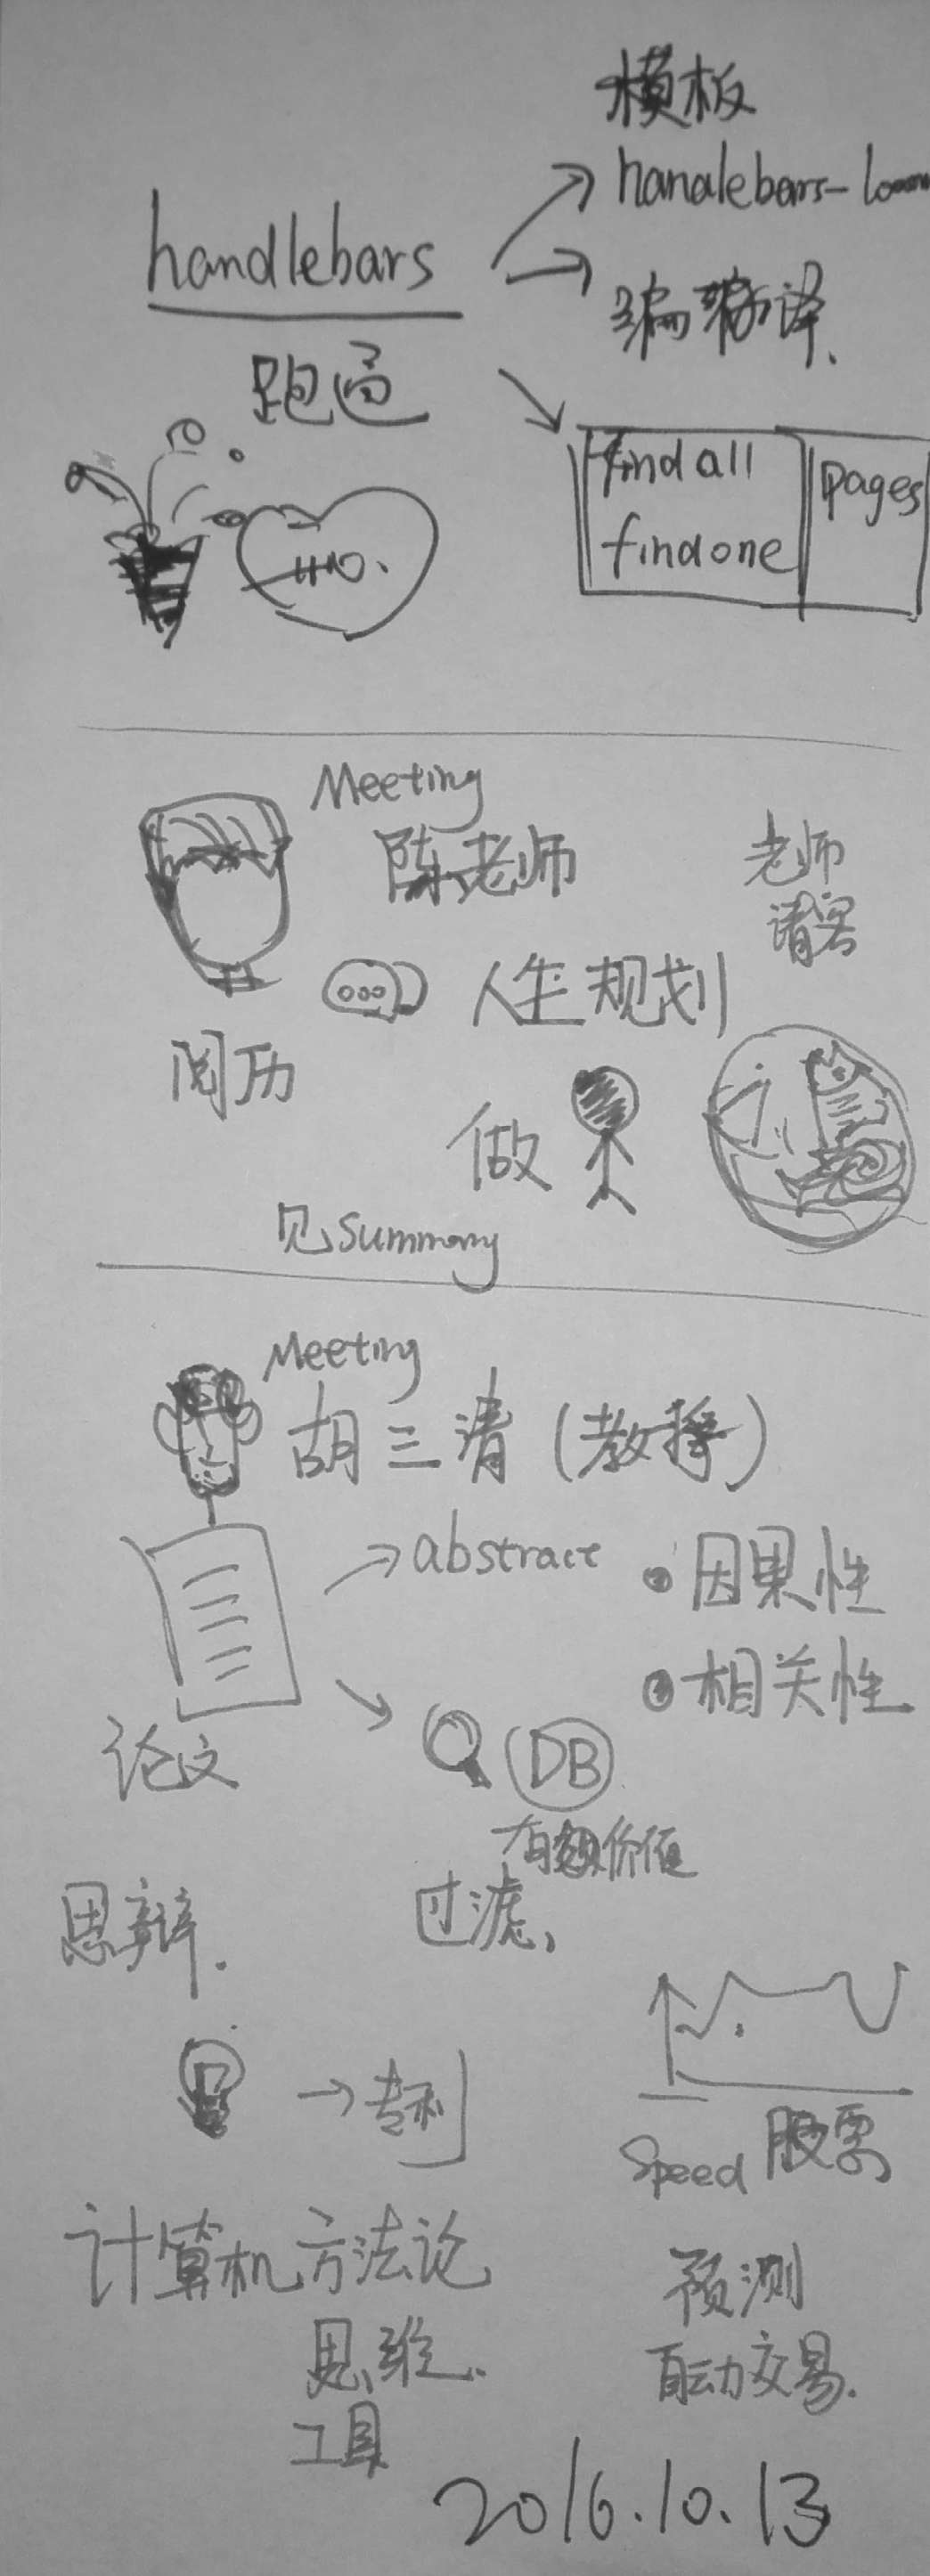 模板
handlebars
handlebars-
编译.
跑通
find all
find one
pages
Meeting
陈老师
老师
请客
人生规划
阅历
做
见summary
Meeting
胡三清(教授)
abstract
因果性
相关性
DB
论文
有价值
过滤、
思辩.
→专利
speed 股票
计算机方法论
预测
思维.
自动交易.
工具
2016.10.13